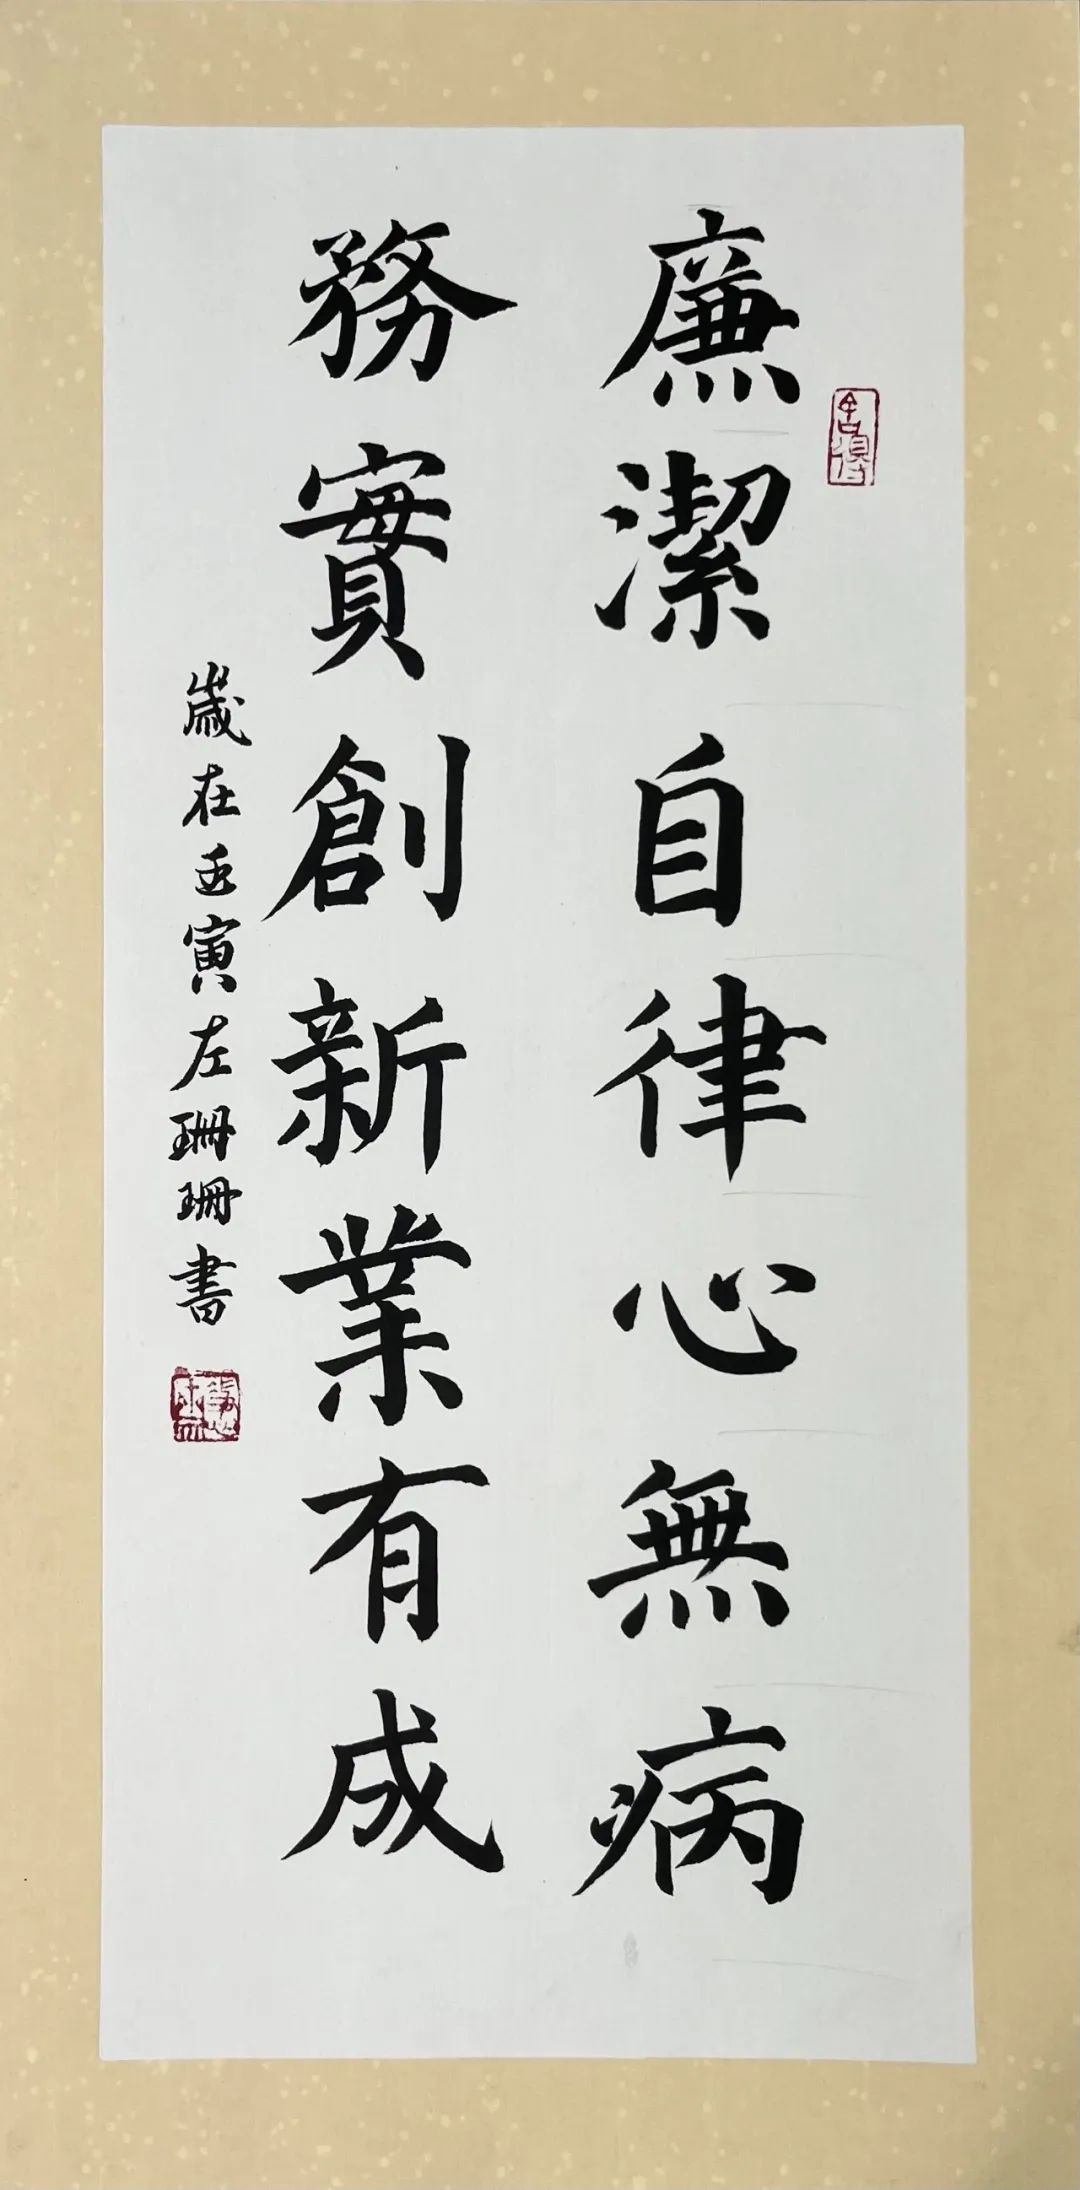 廉潔自律心無病
務實創新業有成
歲在壬寅左珊珊書
舍得